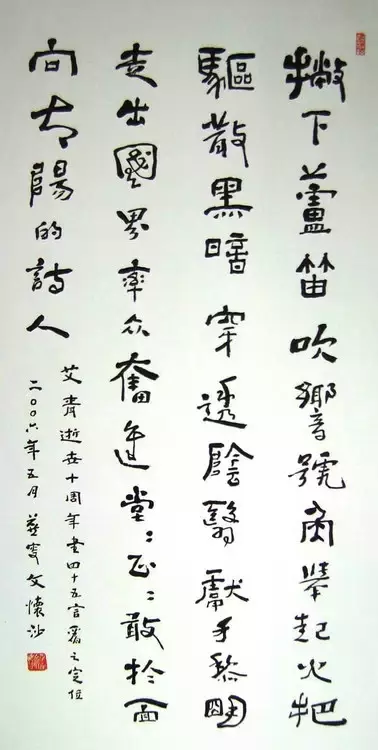 撇下蘆笛吹響號角舉起火把
驅散黑暗穿透陰翳獻于黎明
走出國界率众奮進堂:正:敢於面
向太陽的詩人
艾青逝世十周年書四十五言為之定位
二〇〇六年五月 燕叟文懷沙